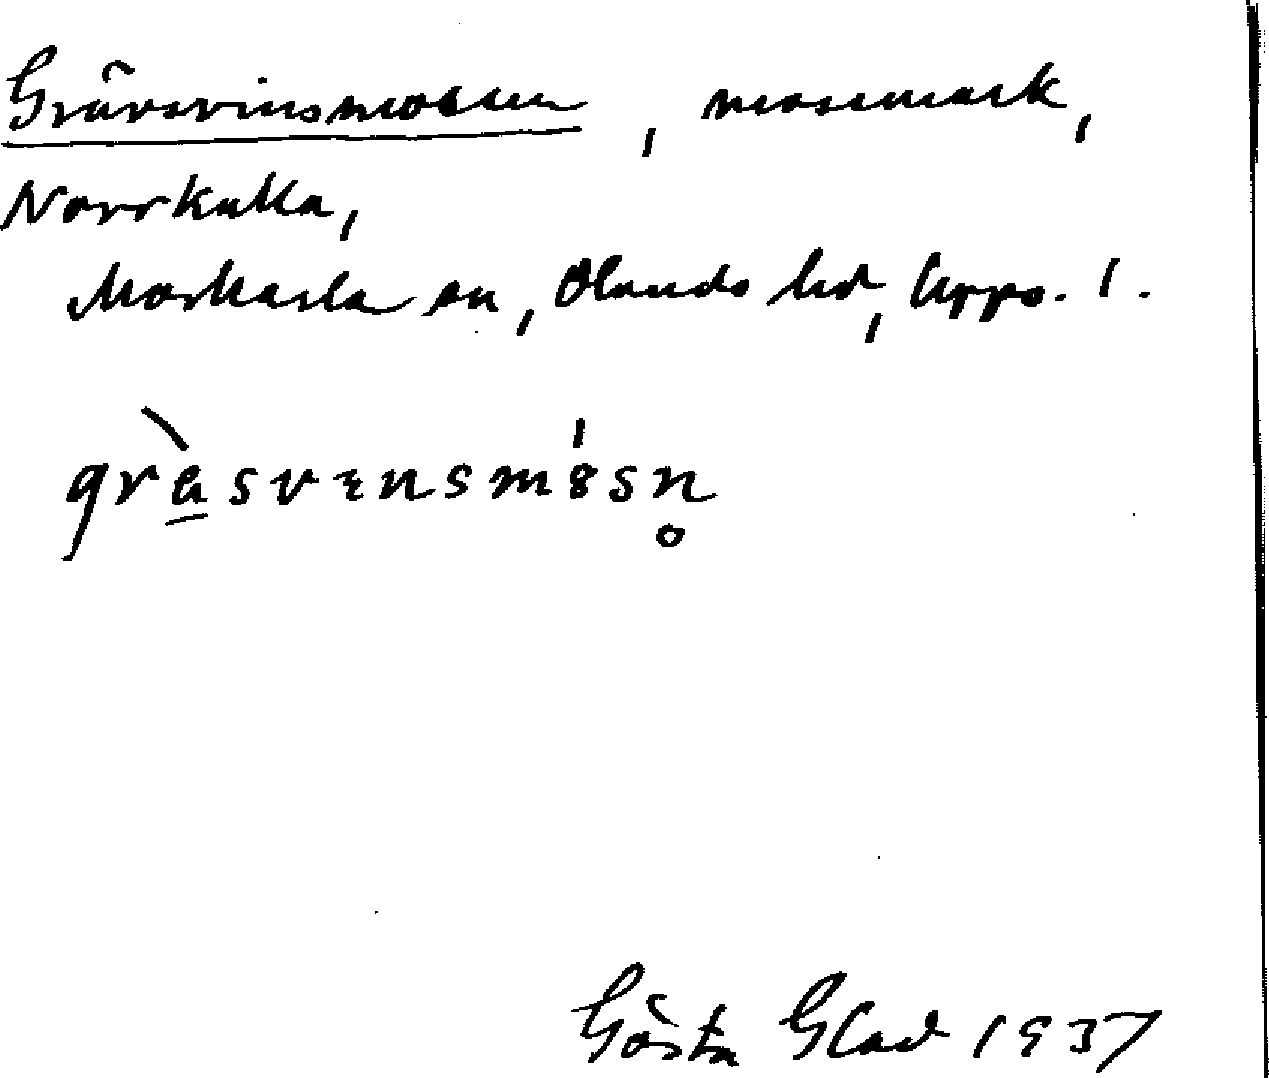 Grävsvinsmossen, mossmark,
Norrkulla,
Morkarla sn, Olands hd, Upps. l.
gràsvensmósn
Gösta Glad 1937